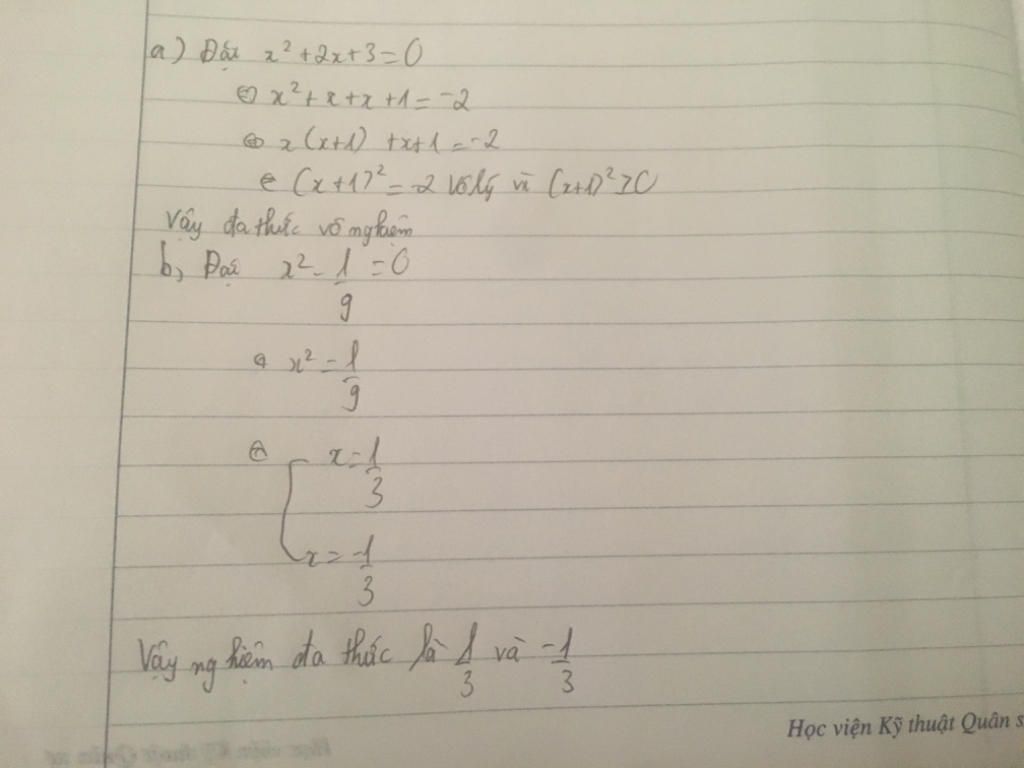 a) Đặt x² + 2x + 3 = 0
⇔ x² + x + x + 1 = -2
⇔ x(x+1) + x+1 = -2
⇔ (x+1)² = -2 vô lý vì (x+1)² ≥ 0
Vậy đa thức vô nghiệm
b, Đặt x² - 1/9 = 0
⇔ x² = 1/9
⇔ [ x = 1/3
x = -1/3
Vậy nghiệm đa thức là 1/3 và -1/3
Học viện Kỹ thuật Quân s